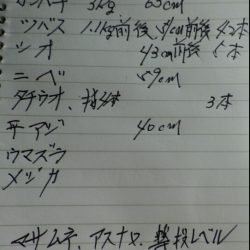 カンパチ 3kg 63cm
ツバス 1.1kg前後 41cm前後 42本
シオ 43cm前後 5本
ニベ 59cm
タチウオ、指4本 3本
平アジ 40cm
ウマズラ
メジカ
マサムネ、アスナロ レベル